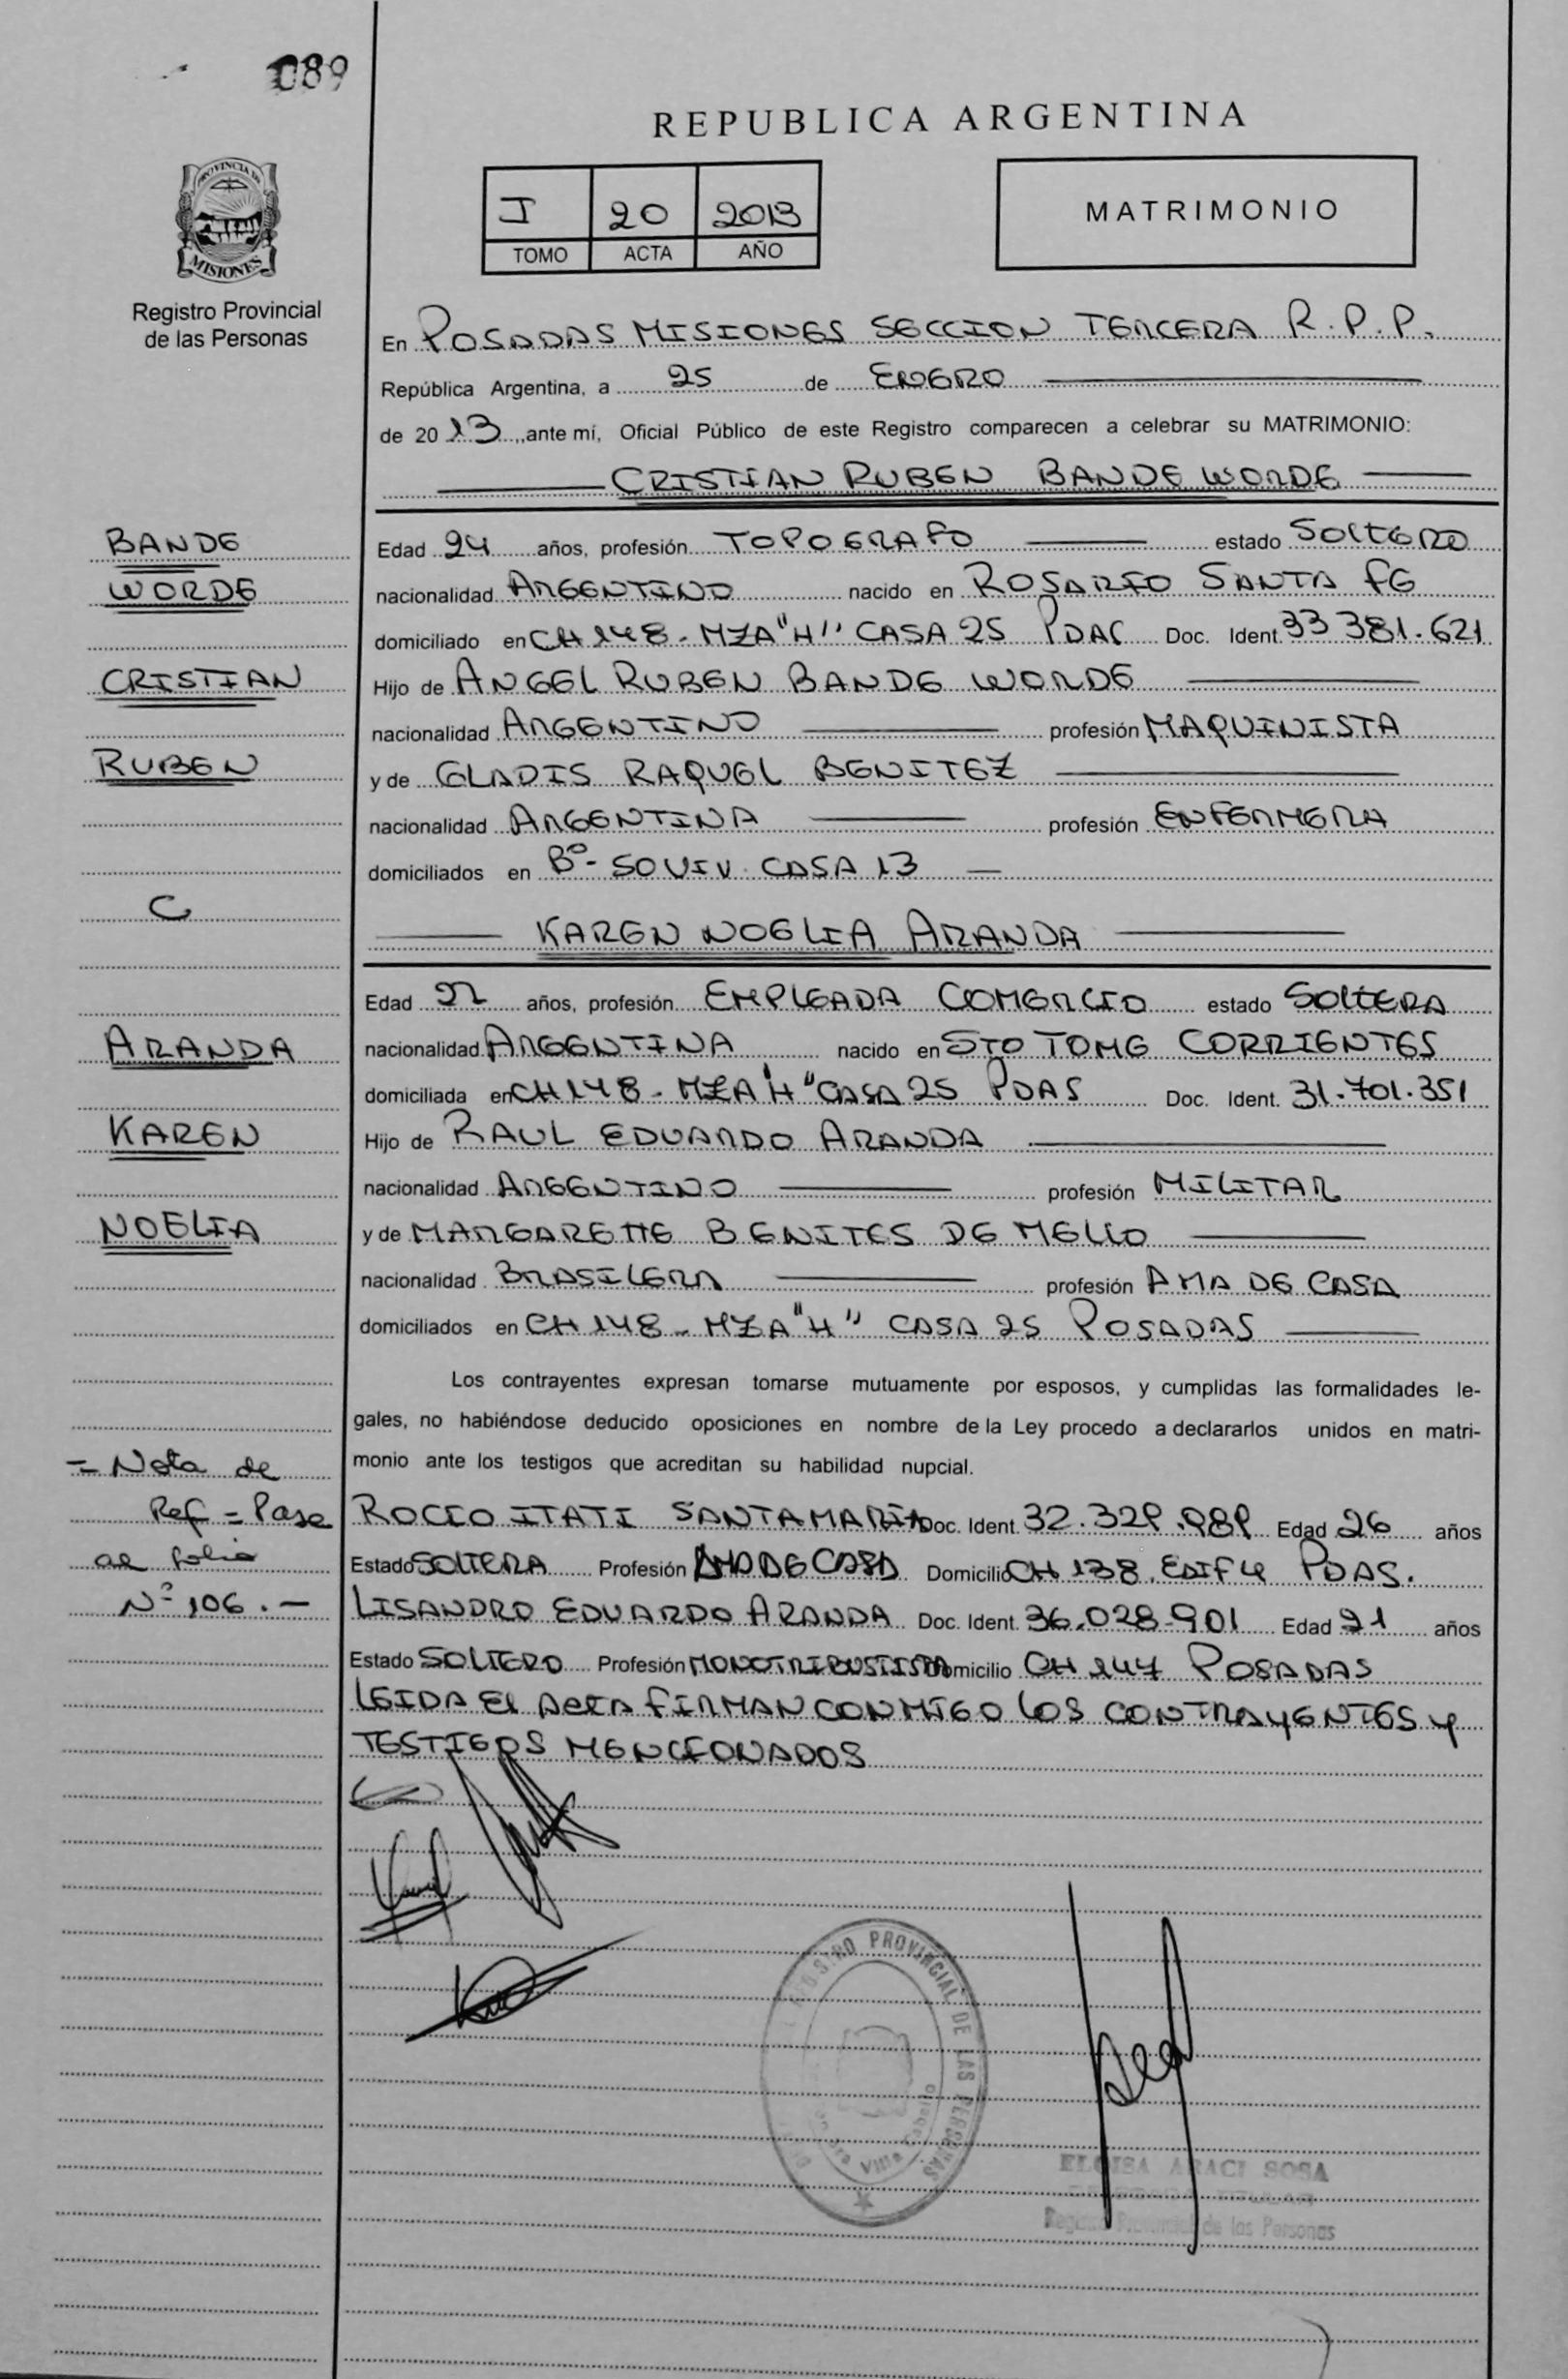 089
REPUBLICA ARGENTINA
PROVINCIA DE
MISIONES
Registro Provincial
de las Personas
I 20 2013
TOMO ACTA AÑO
MATRIMONIO
En POSADAS MISIONES SECCION TERCERA R.P.P.
República Argentina, a 25 de ENERO
de 20 13, ante mí, Oficial Público de este Registro comparecen a celebrar su MATRIMONIO:
CRISTIAN RUBEN BANDE WORDE
BANDE
WORDE
CRISTIAN
RUBEN
Edad 24 años, profesión TOPOGRAFO estado SOLTERO
nacionalidad ARGENTINO nacido en ROSARIO SANTA FE
domiciliado en CH 148 - MZA "H" CASA 25 PDAS Doc. Ident. 33 381.621
Hijo de ANGEL RUBEN BANDE WORDE
nacionalidad ARGENTINO profesión MAQUINISTA
y de GLADIS RAQUEL BENITEZ
nacionalidad ARGENTINA profesión ENFERMERA
domiciliados en Bº- 50 VIV. CASA 13
C
KAREN NOELIA ARANDA
ARANDA
KAREN
NOELIA
Edad 27 años, profesión EMPLEADA COMERCIO estado SOLTERA
nacionalidad ARGENTINA nacido en STO TOME CORRIENTES
domiciliada en CH 148 - MZA "H" CASA 25 PDAS Doc. Ident. 31.701.351
Hijo de RAUL EDUARDO ARANDA
nacionalidad ARGENTINO profesión MILITAR
y de MARGARETTE BENITES DE MELLO
nacionalidad BRASILERA profesión AMA DE CASA
domiciliados en CH 148 - MZA "H" CASA 25 POSADAS
Los contrayentes expresan tomarse mutuamente por esposos, y cumplidas las formalidades le-
gales, no habiéndose deducido oposiciones en nombre de la Ley procedo a declararlos unidos en matri-
monio ante los testigos que acreditan su habilidad nupcial.
= Nota de
Ref = Pase
al folio
Nº 106.-
ROCIO ITATI SANTAMARIA Doc. Ident. 32.329.989 Edad 26 años
Estado SOLTERA Profesión AMA DE CASA Domicilio CH 138. EDIF 4 PDAS.
LISANDRO EDUARDO ARANDA Doc. Ident. 36.028.901 Edad 21 años
Estado SOLTERO Profesión MONOTRIBUSTISTA Domicilio CH 147 POSADAS
LEIDA El ACTA FIRMAN CONMIGO LOS CONTRAYENTES Y
TESTIGOS MENCIONADOS
REGISTRO PROVINCIAL DE LAS PERSONAS
ELOISA ARACI SOSA
Registro Provincial de las Personas